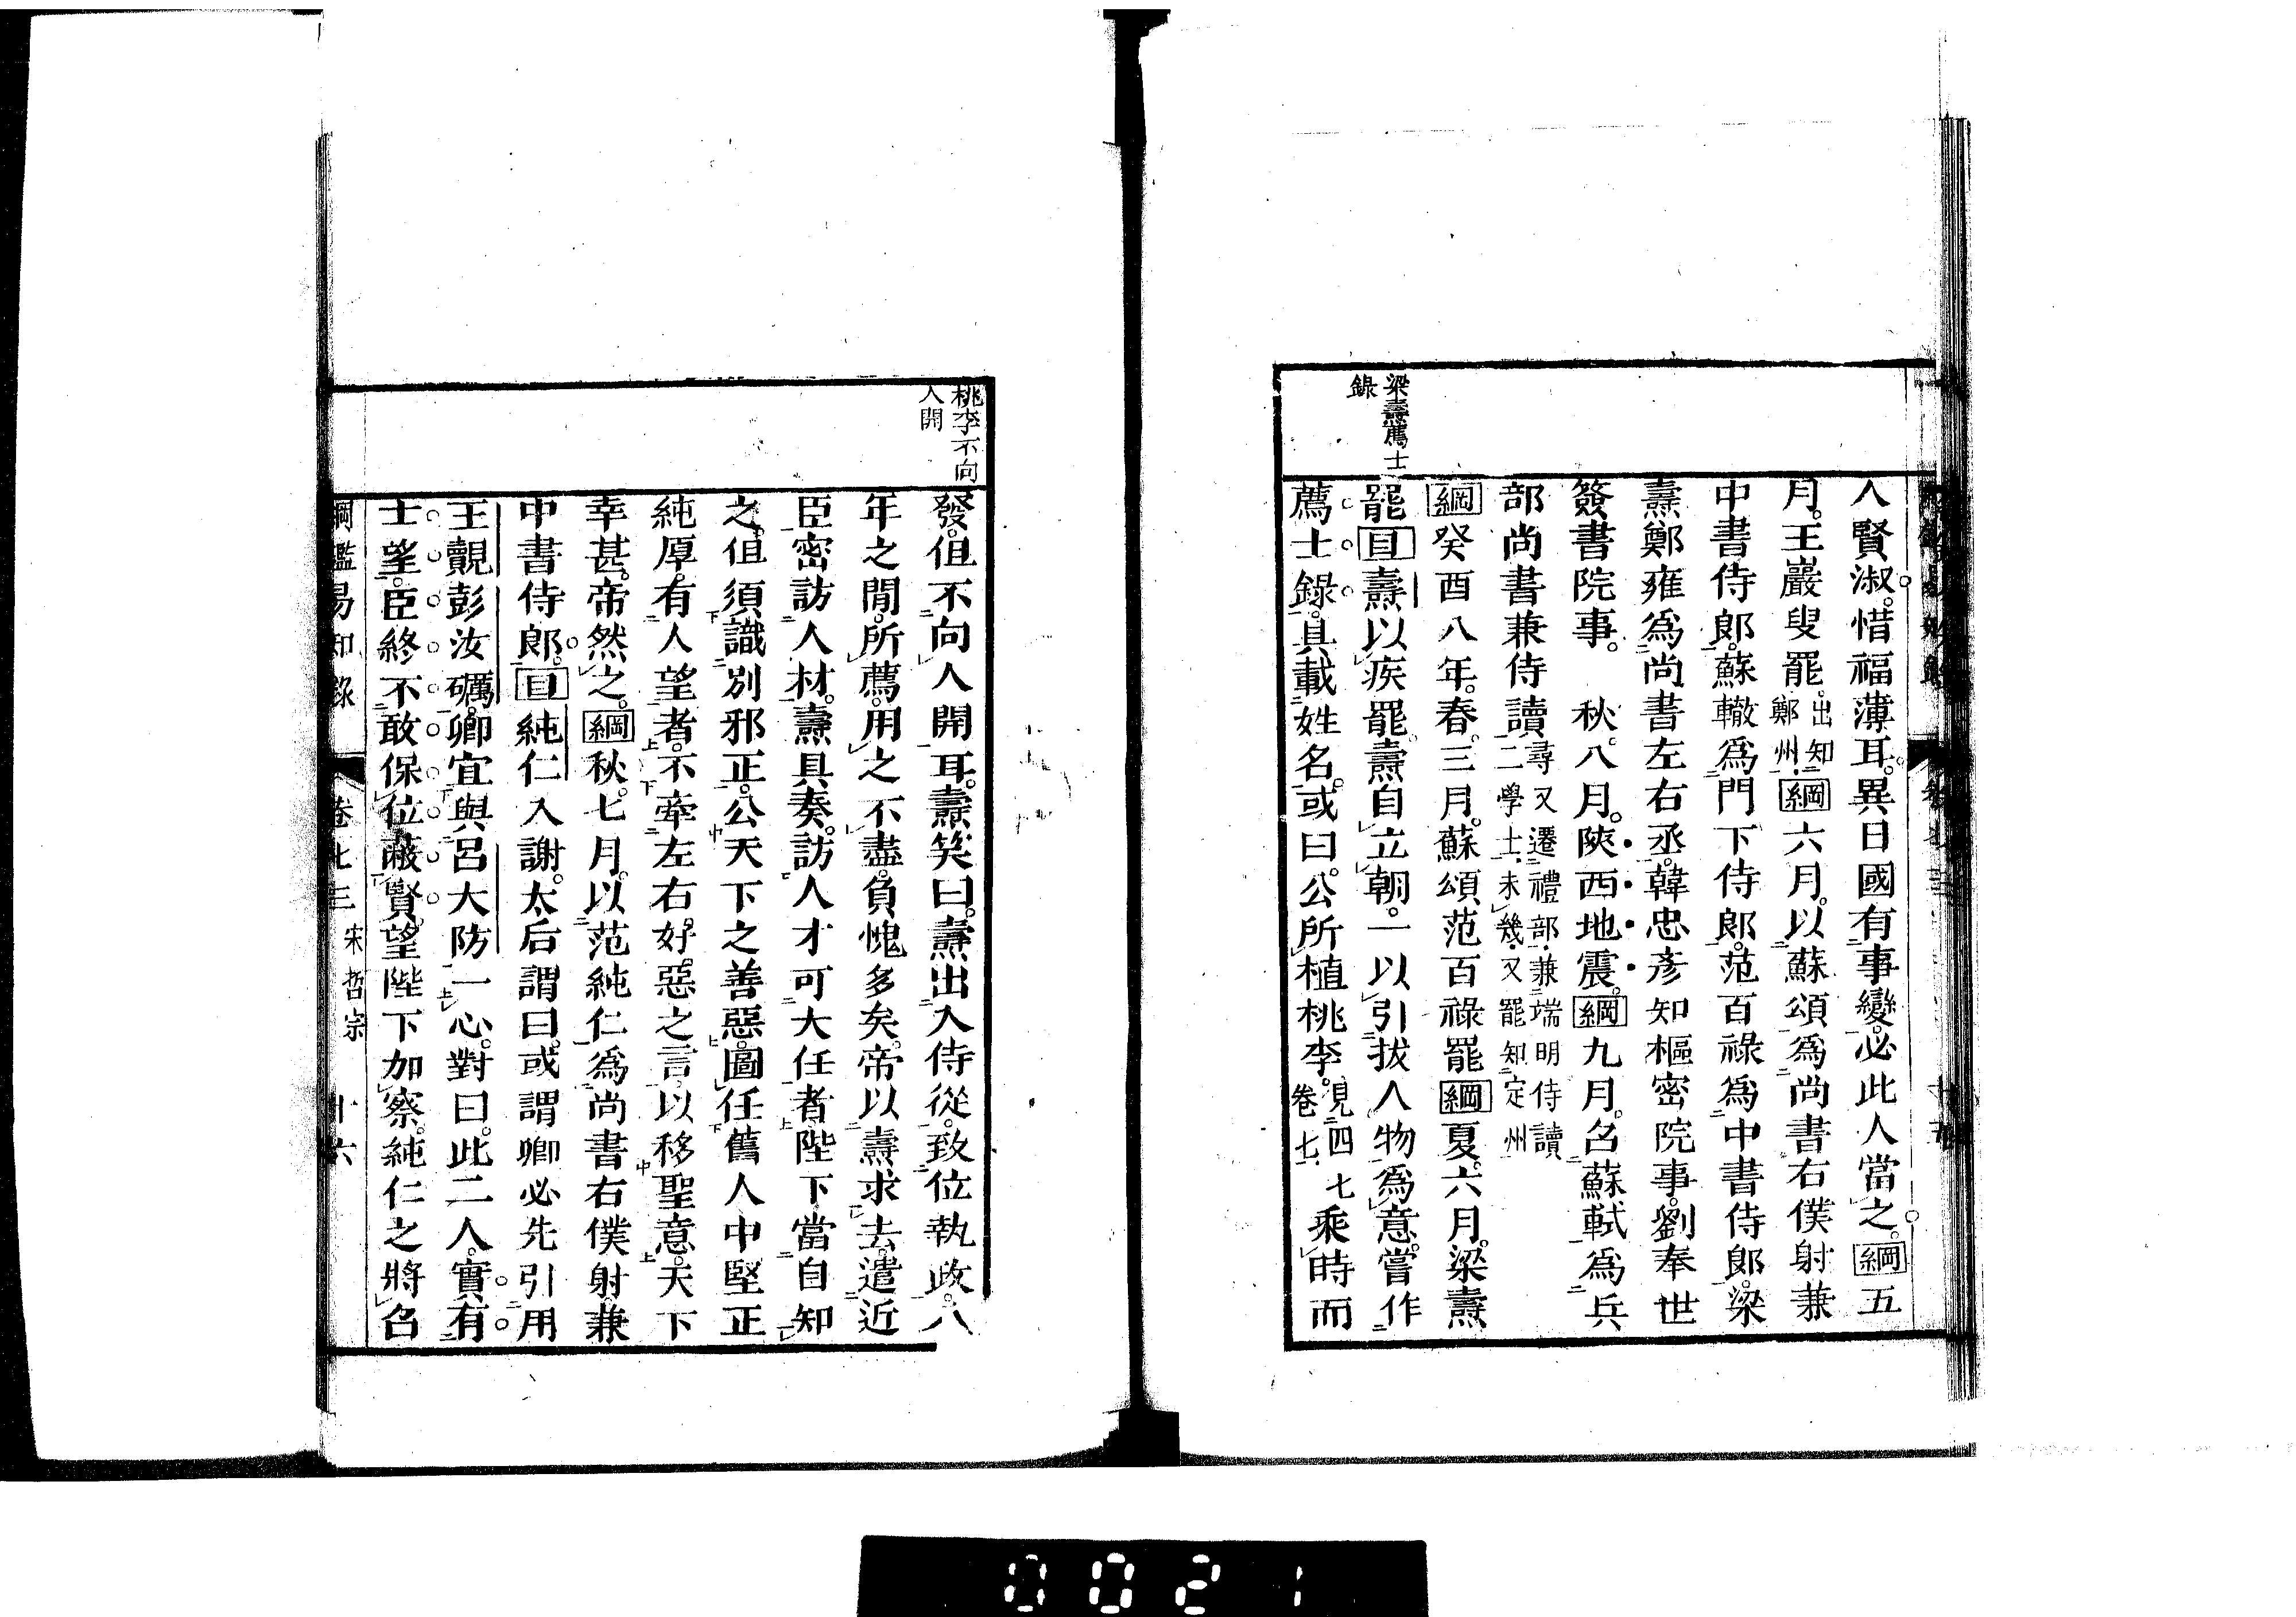 梁燾薦士
錄
人賢淑。惜福薄耳。異日國有事變。必此人當之。綱五
月。王巖叟罷。出知鄭州。綱六月。以蘇頌爲尚書右僕射兼
中書侍郎。蘇轍爲門下侍郎。范百祿爲中書侍郎。梁
燾鄭雍爲尚書左右丞。韓忠彥知樞密院事。劉奉世
簽書院事。 秋。八月。陝西地震。綱九月。召蘇軾爲兵
部尚書兼侍讀。尋又遷禮部。兼端明侍讀二學士。未幾。又罷知定州
綱癸酉八年。春。三月。蘇頌范百祿罷。綱夏。六月。梁燾
罷。目燾以疾罷。燾自立朝。一以引拔人物爲意。嘗作
薦士錄。具載姓名。或曰。公所植桃李。見四七卷七。乘時而
桃李不向
人開
發。但不向人開耳。燾笑曰。燾出入侍從。致位執政。八
年之閒。所薦。用之不盡。負愧多矣。帝以燾求去。遣近
臣密訪人材。燾具奏。訪人才可大任者。陛下當自知
之。但須識別邪正。公天下之善惡。圖任舊人中堅正
純厚。有人望者。不牽左右好惡之言。以移聖意。天下
幸甚。帝然之。綱秋。七月。以范純仁爲尚書右僕射。兼
中書侍郎。目純仁入謝。太后謂曰。或謂卿必先引用
王覿彭汝礪。卿宜與呂大防一心。對曰。此二人。實有
士望。臣終不敢保位蔽賢。望陛下加察。純仁之將召
綱鑑易知錄 卷七三 宋哲宗 十六
0021